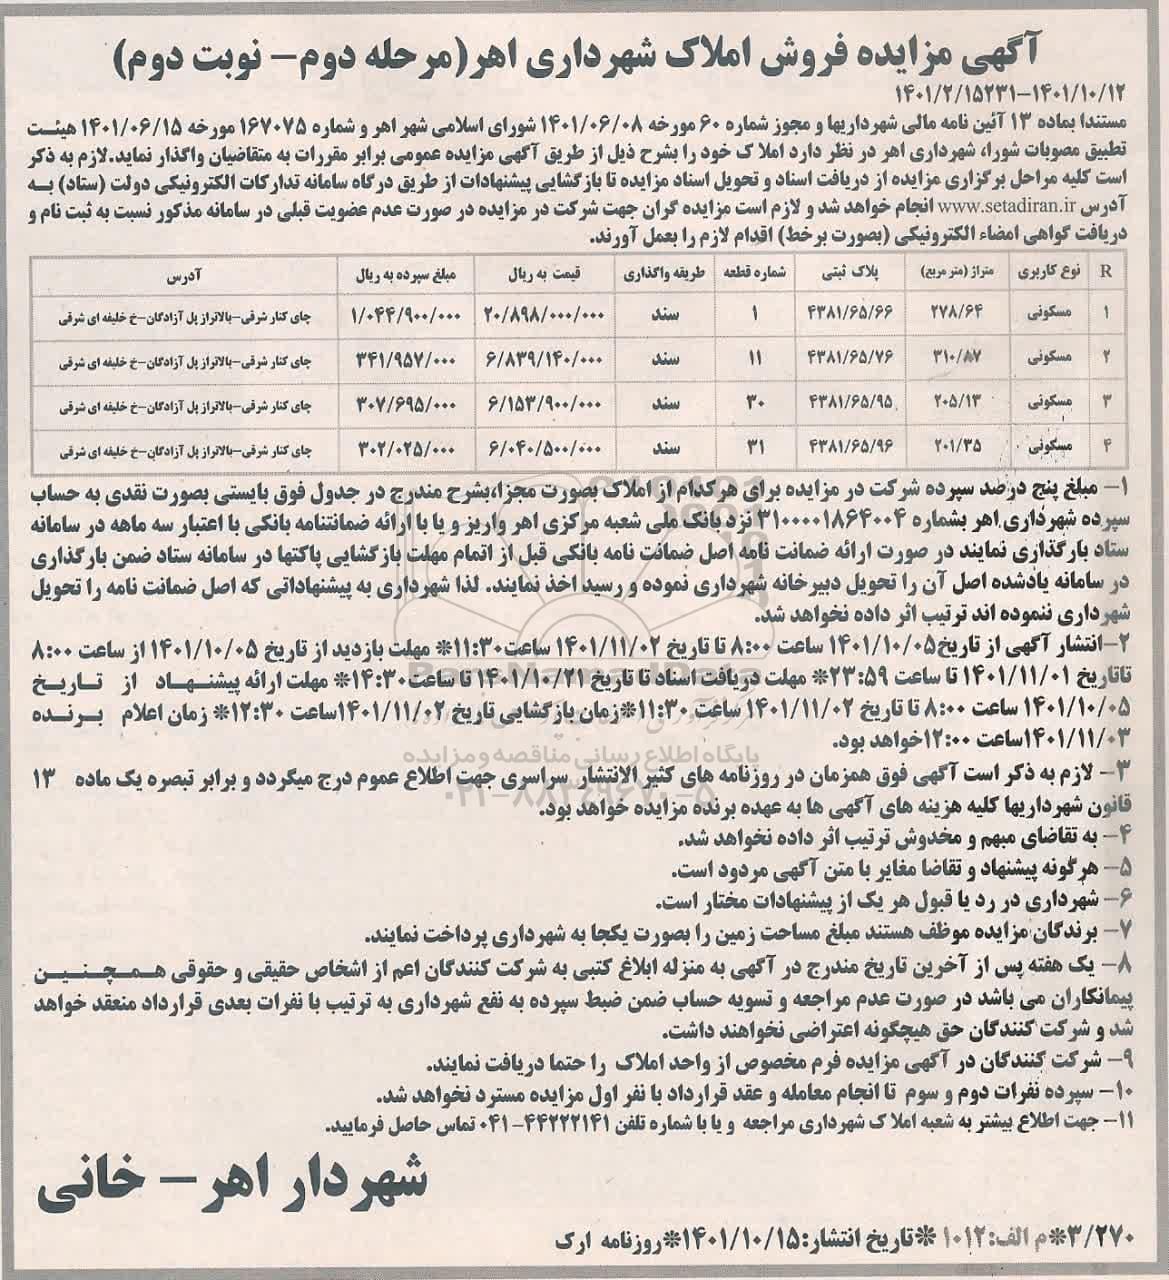 آگهی مزایده فروش املاک شهرداری اهر(مرحله دوم- نوبت دوم)
۱۴۰۱/۲/۱۵۲۳۱-۱۴۰۱/۱۰/۱۲
مستندا بماده ۱۳ آئین نامه مالی شهرداریها و مجوز شماره ۶۰ مورخه ۱۴۰۱/۰۶/۰۸ شورای اسلامی شهر اهر و شماره ۱۶۷۰۷۵ مورخه ۱۴۰۱/۰۶/۱۵ هیئت
تطبیق مصوبات شورا، شهرداری اهر در نظر دارد املا ک خود را بشرح ذیل از طریق آگهی مزایده عمومی برابر مقررات به متقاضیان واگذار نماید.لازم به ذکر
است کلیه مراحل برگزاری مزایده از دریافت اسناد و تحویل اسناد مزایده تا بازگشایی پیشنهادات از طریق درگاه سامانه تدارکات الکترونیکی دولت (ستاد) به
آدرس www.setadiran.ir انجام خواهد شد و لازم است مزایده گران جهت شرکت در مزایده در صورت عدم عضویت قبلی در سامانه مذکور نسبت به ثبت نام و
دریافت گواهی امضاء الکترونیکی (بصورت برخط) اقدام لازم را بعمل آورند.
R نوع کاربری متراژ (متر مربع) پلاک ثبتی شماره قطعه طریقه واگذاری قیمت به ریال مبلغ سپرده به ریال آدرس
۱ مسکونی ۲۷۸/۶۴ ۴۳۸۱/۶۵/۶۶ ۱ سند ۲۰/۸۹۸/۰۰۰/۰۰۰ ۱/۰۴۴/۹۰۰/۰۰۰ چای کنار شرقی-بالاتراز پل آزادگان-خ خلیفه ای شرقی
۲ مسکونی ۳۱۰/۸۷ ۴۳۸۱/۶۵/۷۶ ۱۱ سند ۶/۸۳۹/۱۴۰/۰۰۰ ۳۴۱/۹۵۷/۰۰۰ چای کنار شرقی-بالاتراز پل آزادگان-خ خلیفه ای شرقی
۳ مسکونی ۲۰۵/۱۳ ۴۳۸۱/۶۵/۹۵ ۳۰ سند ۶/۱۵۳/۹۰۰/۰۰۰ ۳۰۷/۶۹۵/۰۰۰ چای کنار شرقی-بالاتراز پل آزادگان-خ خلیفه ای شرقی
۴ مسکونی ۲۰۱/۳۵ ۴۳۸۱/۶۵/۹۶ ۳۱ سند ۶/۰۴۰/۵۰۰/۰۰۰ ۳۰۲/۰۲۵/۰۰۰ چای کنار شرقی-بالاتراز پل آزادگان-خ خلیفه ای شرقی
۱- مبلغ پنج درصد سپرده شرکت در مزایده برای هرکدام از املاک بصورت مجزا،بشرح مندرج در جدول فوق بایستی بصورت نقدی به حساب
سپرده شهرداری اهر بشماره ۳۱۰۰۰۰۱۸۶۴۰۰۴ نزد بانک ملی شعبه مرکزی اهر واریز و یا با ارائه ضمانتنامه بانکی با اعتبار سه ماهه در سامانه
ستاد بارگذاری نمایند در صورت ارائه ضمانت نامه اصل ضمانت نامه بانکی قبل از اتمام مهلت بازگشایی پاکتها در سامانه ستاد ضمن بارگذاری
در سامانه یادشده اصل آن را تحویل دبیرخانه شهرداری نموده و رسید اخذ نمایند. لذا شهرداری به پیشنهاداتی که اصل ضمانت نامه را تحویل
شهرداری ننموده اند ترتیب اثر داده نخواهد شد.
۲-انتشار آگهی از تاریخ۱۴۰۱/۱۰/۰۵ ساعت ۸:۰۰ تا تاریخ ۱۴۰۱/۱۱/۰۲ ساعت۱۱:۳۰* مهلت بازدید از تاریخ ۱۴۰۱/۱۰/۰۵ از ساعت ۸:۰۰
تاتاریخ ۱۴۰۱/۱۱/۰۱ تا ساعت ۲۳:۵۹* مهلت دریافت اسناد تا تاریخ ۱۴۰۱/۱۰/۲۱ تا ساعت۱۴:۳۰* مهلت ارائه پیشنهاد از تاریخ
۱۴۰۱/۱۰/۰۵ ساعت ۸:۰۰ تا تاریخ ۱۴۰۱/۱۱/۰۲ ساعت ۱۱:۳۰*زمان بازگشایی تاریخ ۱۴۰۱/۱۱/۰۲ساعت ۱۲:۳۰* زمان اعلام برنده
۱۴۰۱/۱۱/۰۳ساعت ۱۲:۰۰خواهد بود.
پایگاه اطلاع رسانی مناقصه و مزایده
۳- لازم به ذکر است آگهی فوق همزمان در روزنامه های کثیر الانتشار سراسری جهت اطلاع عموم درج میگردد و برابر تبصره یک ماده ۱۳
۰۲۱-۸۸۳۴۹۶۷۰-۵
قانون شهرداریها کلیه هزینه های آگهی ها به عهده برنده مزایده خواهد بود.
۴- به تقاضای مبهم و مخدوش ترتیب اثر داده نخواهد شد.
۵- هرگونه پیشنهاد و تقاضا مغایر با متن آگهی مردود است.
۶- شهرداری در رد یا قبول هر یک از پیشنهادات مختار است.
۷- برندگان مزایده موظف هستند مبلغ مساحت زمین را بصورت یکجا به شهرداری پرداخت نمایند.
۸- یک هفته پس از آخرین تاریخ مندرج در آگهی به منزله ابلاغ کتبی به شرکت کنندگان اعم از اشخاص حقیقی و حقوقی همچنین
پیمانکاران می باشد در صورت عدم مراجعه و تسویه حساب ضمن ضبط سپرده به نفع شهرداری به ترتیب با نفرات بعدی قرارداد منعقد خواهد
شد و شرکت کنندگان حق هیچگونه اعتراضی نخواهند داشت.
۹- شرکت کنندگان در آگهی مزایده فرم مخصوص از واحد املاک را حتما دریافت نمایند.
۱۰- سپرده نفرات دوم و سوم تا انجام معامله و عقد قرارداد با نفر اول مزایده مسترد نخواهد شد.
۱۱- جهت اطلاع بیشتر به شعبه املا ک شهرداری مراجعه و یا با شماره تلفن ۴۴۲۲۲۱۴۱-۰۴۱ تماس حاصل فرمایید.
شهردار اهر – خانی
۳/۲۷۰*م الف:۱۰۱۲ *تاریخ انتشار:۱۴۰۱/۱۰/۱۵*روزنامه ارک